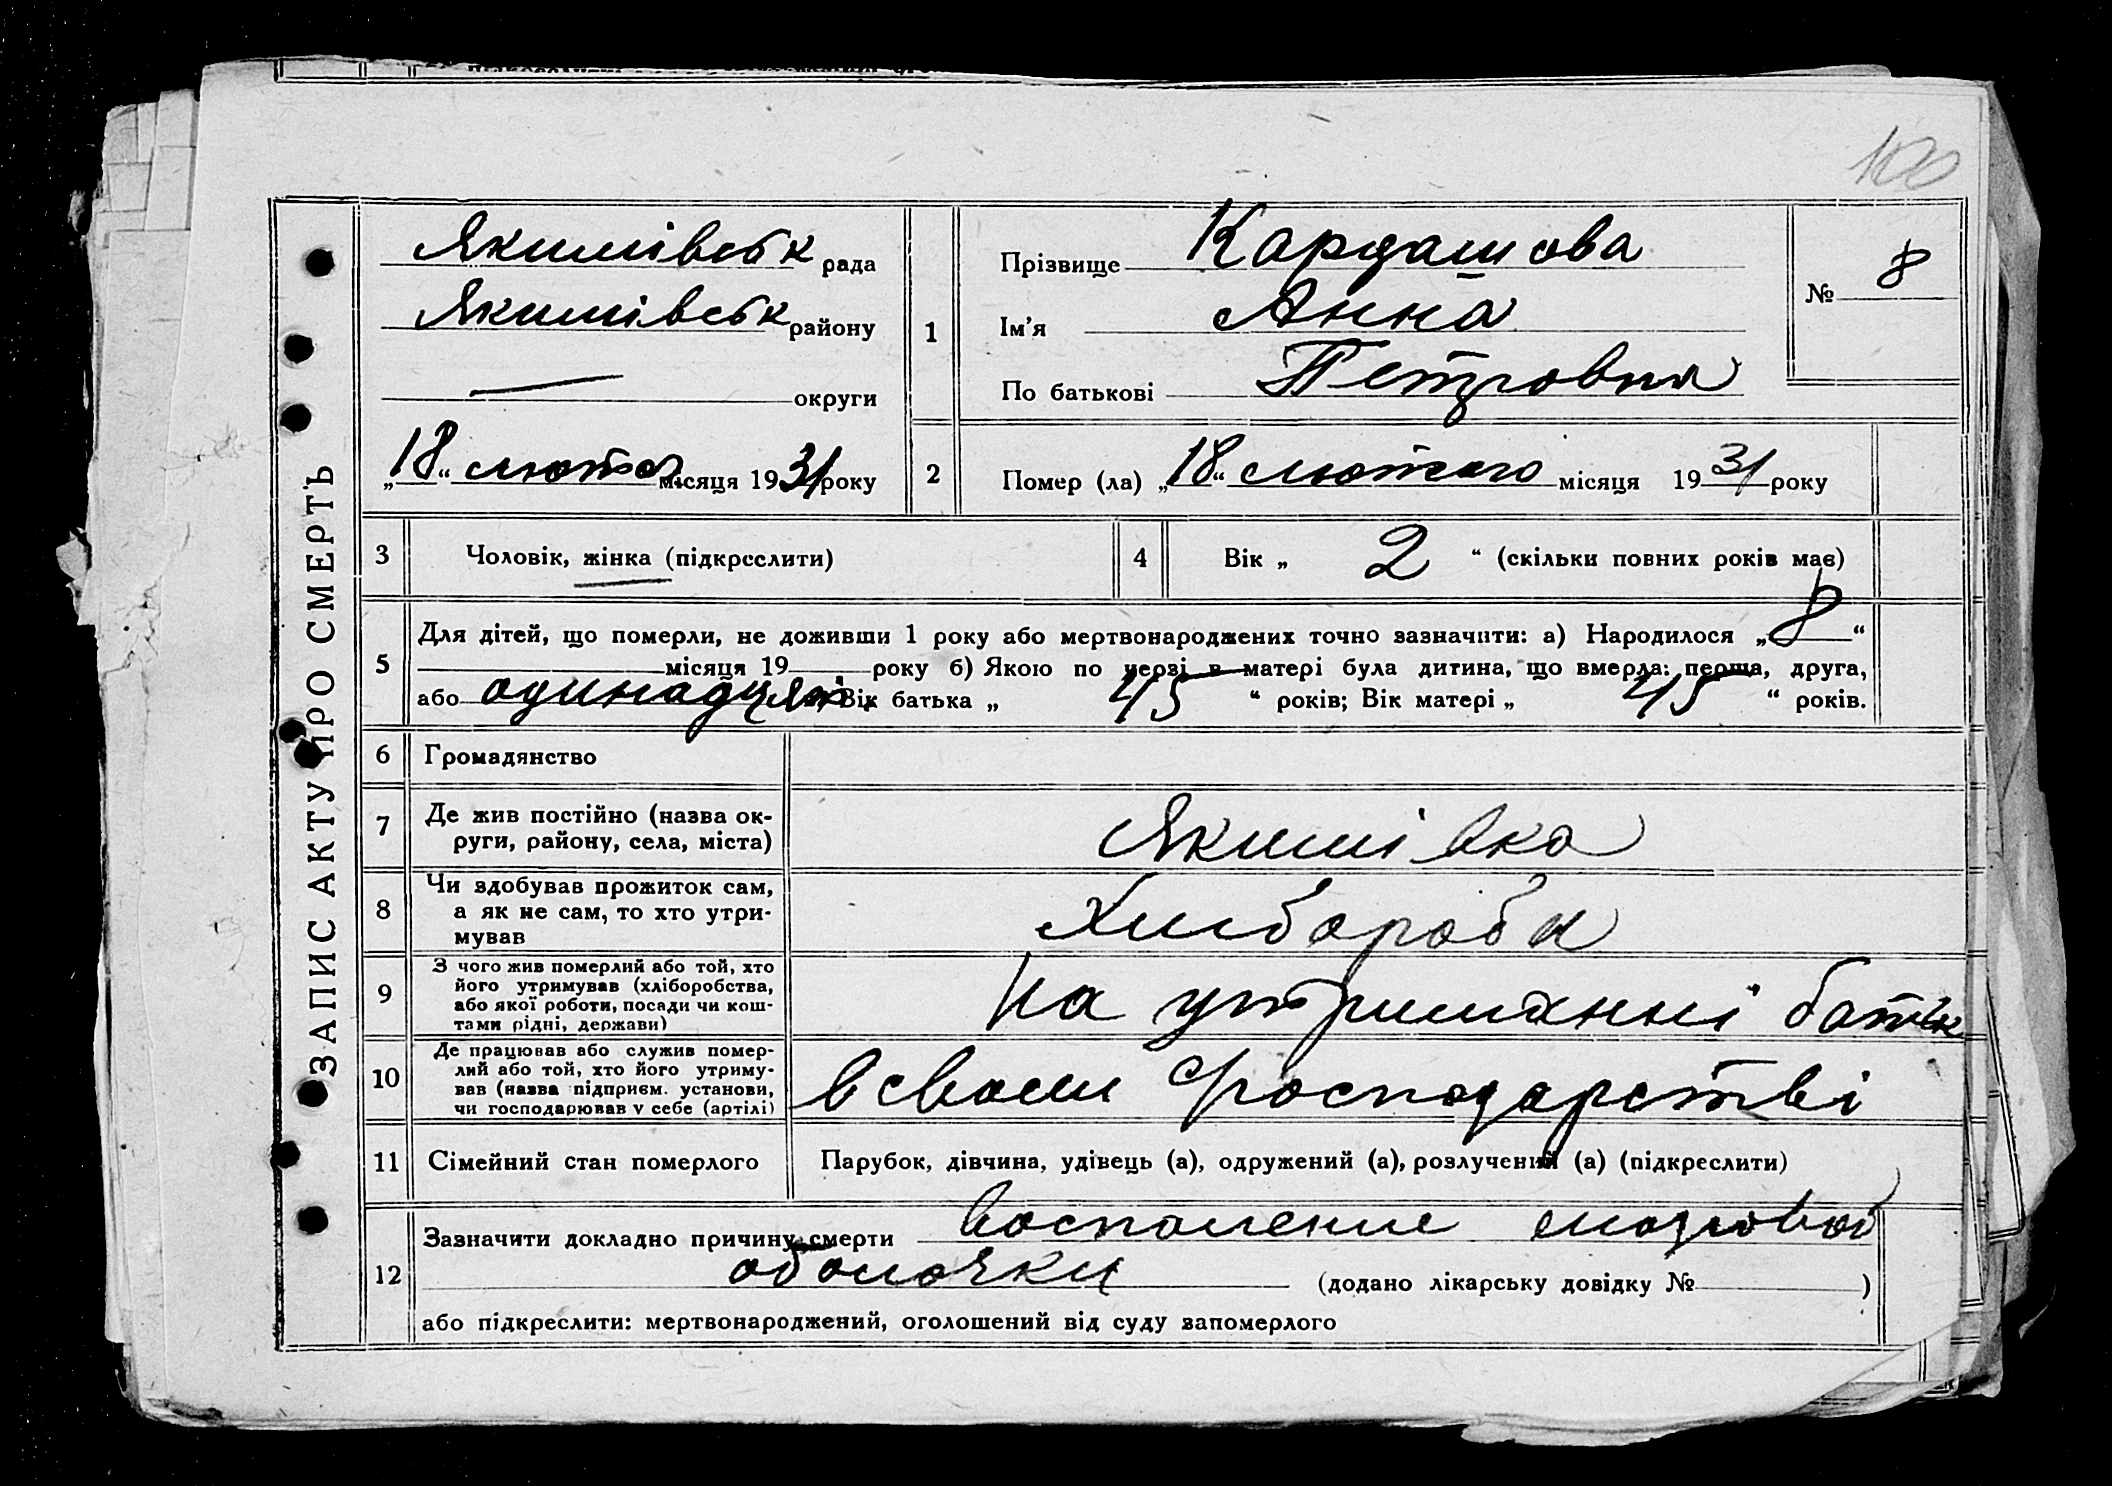 100
ЗАПИС АКТУ ПРО СМЕРТЬ
Якимівськ рада
Якимівськ району
— округи
„18“ лютого місяця 1931 року
1
Прізвище Кардашова
Ім’я Анна
По батькові Петровна
№ 8
2 Помер (ла) „18“ лютого місяця 1931 року
3 Чоловік, жінка (підкреслити)
4 Вік „ 2 “ (скільки повних років має)
5 Для дітей, що померли, не доживши 1 року або мертвонароджених точно зазначити: а) Народилося „8“
місяця 19 року б) Якою по черзі в матері була дитина, що вмерла: перша, друга,
або одинадцята Вік батька „ 45 “ років; Вік матері „ 45 “ років.
6 Громадянство
7 Де жив постійно (назва ок-
руги, району, села, міста)
Якимівка
8 Чи здобував прожиток сам,
а як не сам, то хто утри-
мував
Хлібороба
9 З чого жив померлий або той, хто
його утримував (хліборобства,
або якої роботи, посади чи кош-
тами рідні, держави)
На утриманні батьк
10 Де працював або служив помер-
лий або той, хто його утриму-
вав (назва підприєм. установи,
чи господарював у себе (артілі)
в своєм господарстві
11 Сімейний стан померлого
Парубок, дівчина, удівець (а), одружений (а), розлучений (а) (підкреслити)
12 Зазначити докладно причину смерти воспаление мозговой
оболочки (додано лікарську довідку № )
або підкреслити: мертвонароджений, оголошений від суду запомерлого